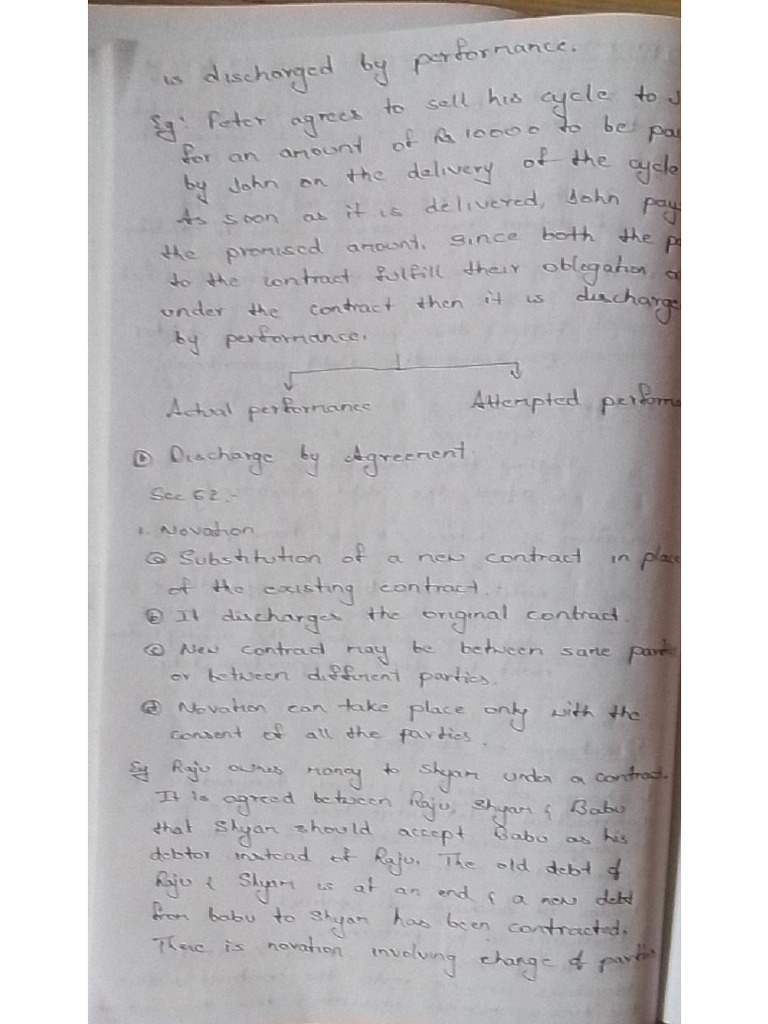 is discharged by performance.
Eg: Peter agrees to sell his cycle to J
for an amount of Rs 10000 to be pa
by John on the delivery of the cycle
As soon as it is delivered, John pay
the promised amount. Since both the p
to the contract fulfill their oblegation
under the contract then it is discharge
by performance.
Actual performance Attempted perform
(b) Discharge by Agreement.
Sec 62:-
1. Novation
(a) Substitution of a new contract in place
of the existing contract.
(b) It discharges the original contract.
(c) New contract may be between same parti
or between different parties.
(d) Novation can take place only with the
consent of all the parties.
Eg Raju ownes money to Shyam under a contract.
It is agreed between Raju, Shyam & Babu
that Shyam should accept Babu as his
debtor instead of Raju. The old debt of
Raju & Shyam is at an end & a new debt
from babu to Shyam has been contracted.
There is novation involving change of parties